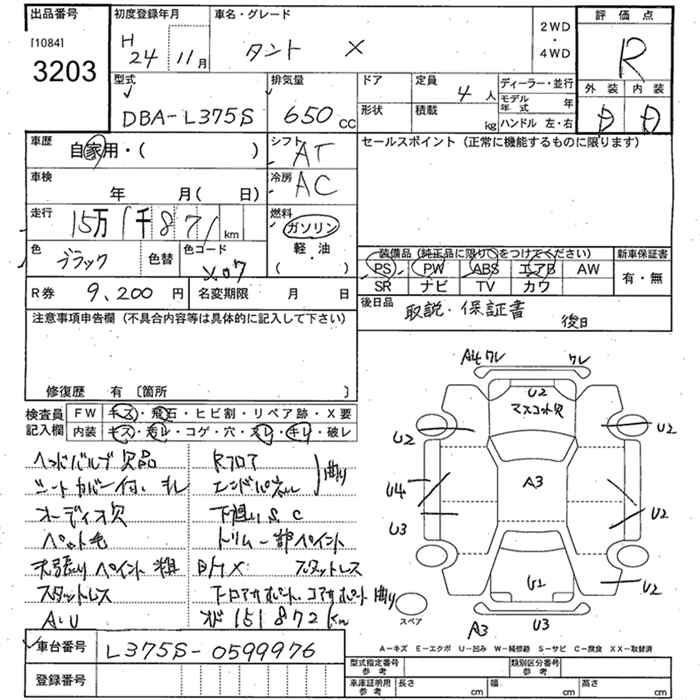 出品番号
[1084]
3203
初度登録年月
H 24 11月
車名・グレード
タント X
2WD
・
4WD
評価点
R
外装 内装
D D
型式
DBA-L375S
排気量
650cc
ドア
定員
4人
ディーラー・並行
形状
積載
kg
モデル年式 年
ハンドル 左・右
車歴
自家用・( )
シフト
AT
セールスポイント (正常に機能するものに限ります)
車検
年 月( 日)
冷房
AC
走行
15万1千871km
燃料
ガソリン
軽・油
( )
色
ブラック
色替
色コード
X07
装備品 (純正品に限り○をつけてください)
新車保証書
PS PW ABS エアB AW
SR ナビ TV カワ
有・無
R券 9,200円
名変期限 月 日
後日品
取説・保証書
後日
注意事項申告欄 (不具合内容等は具体的に記入して下さい)
修復歴 有 〔箇所 〕
検査員記入欄
FW キズ・飛石・ヒビ割・リペア跡・X要
内装 キズ・汚レ・コゲ・穴・スレ・キレ・破レ
ヘッドバルブ欠品
シートカバー付、キレ
オーディオ欠
ペット毛
天張りペイント 粗
スタットレス
A、U
Rフロア
エンドパネル
曲り
下廻りS、C
トリム一部ペイント
スタットレス
フロアサポート、コアサポート曲り
メ 151872km
A4 ワレ
ワレ
U2
マスコット欠
U2
U2
A3
U4
U3
U2
U1
U2
スペア
A3
U3
A-キズ E-エクボ U-凹み W-補修跡 S-サビ C-腐食 XX-取替済
車台番号
L375S-0599976
登録番号
型式指定番号 参考
類別区分番号 参考
車庫証明用 参考
長さ cm
幅 cm
高さ cm